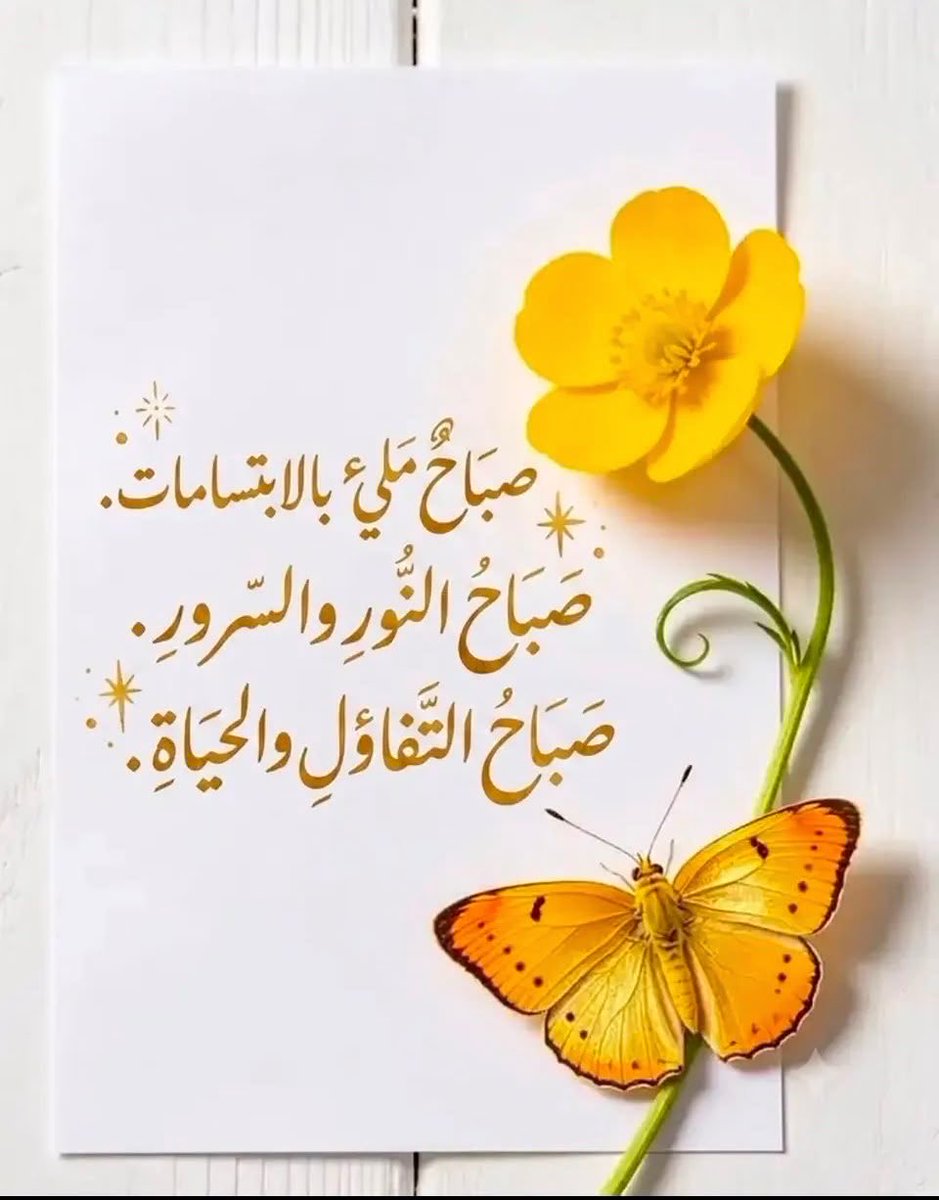 صبَاحٌ مَليء بالابتسامات.
صَبَاحُ النُّورِ والسّرورِ.
صَبَاحُ التَّفاؤلِ والحيَاةِ.